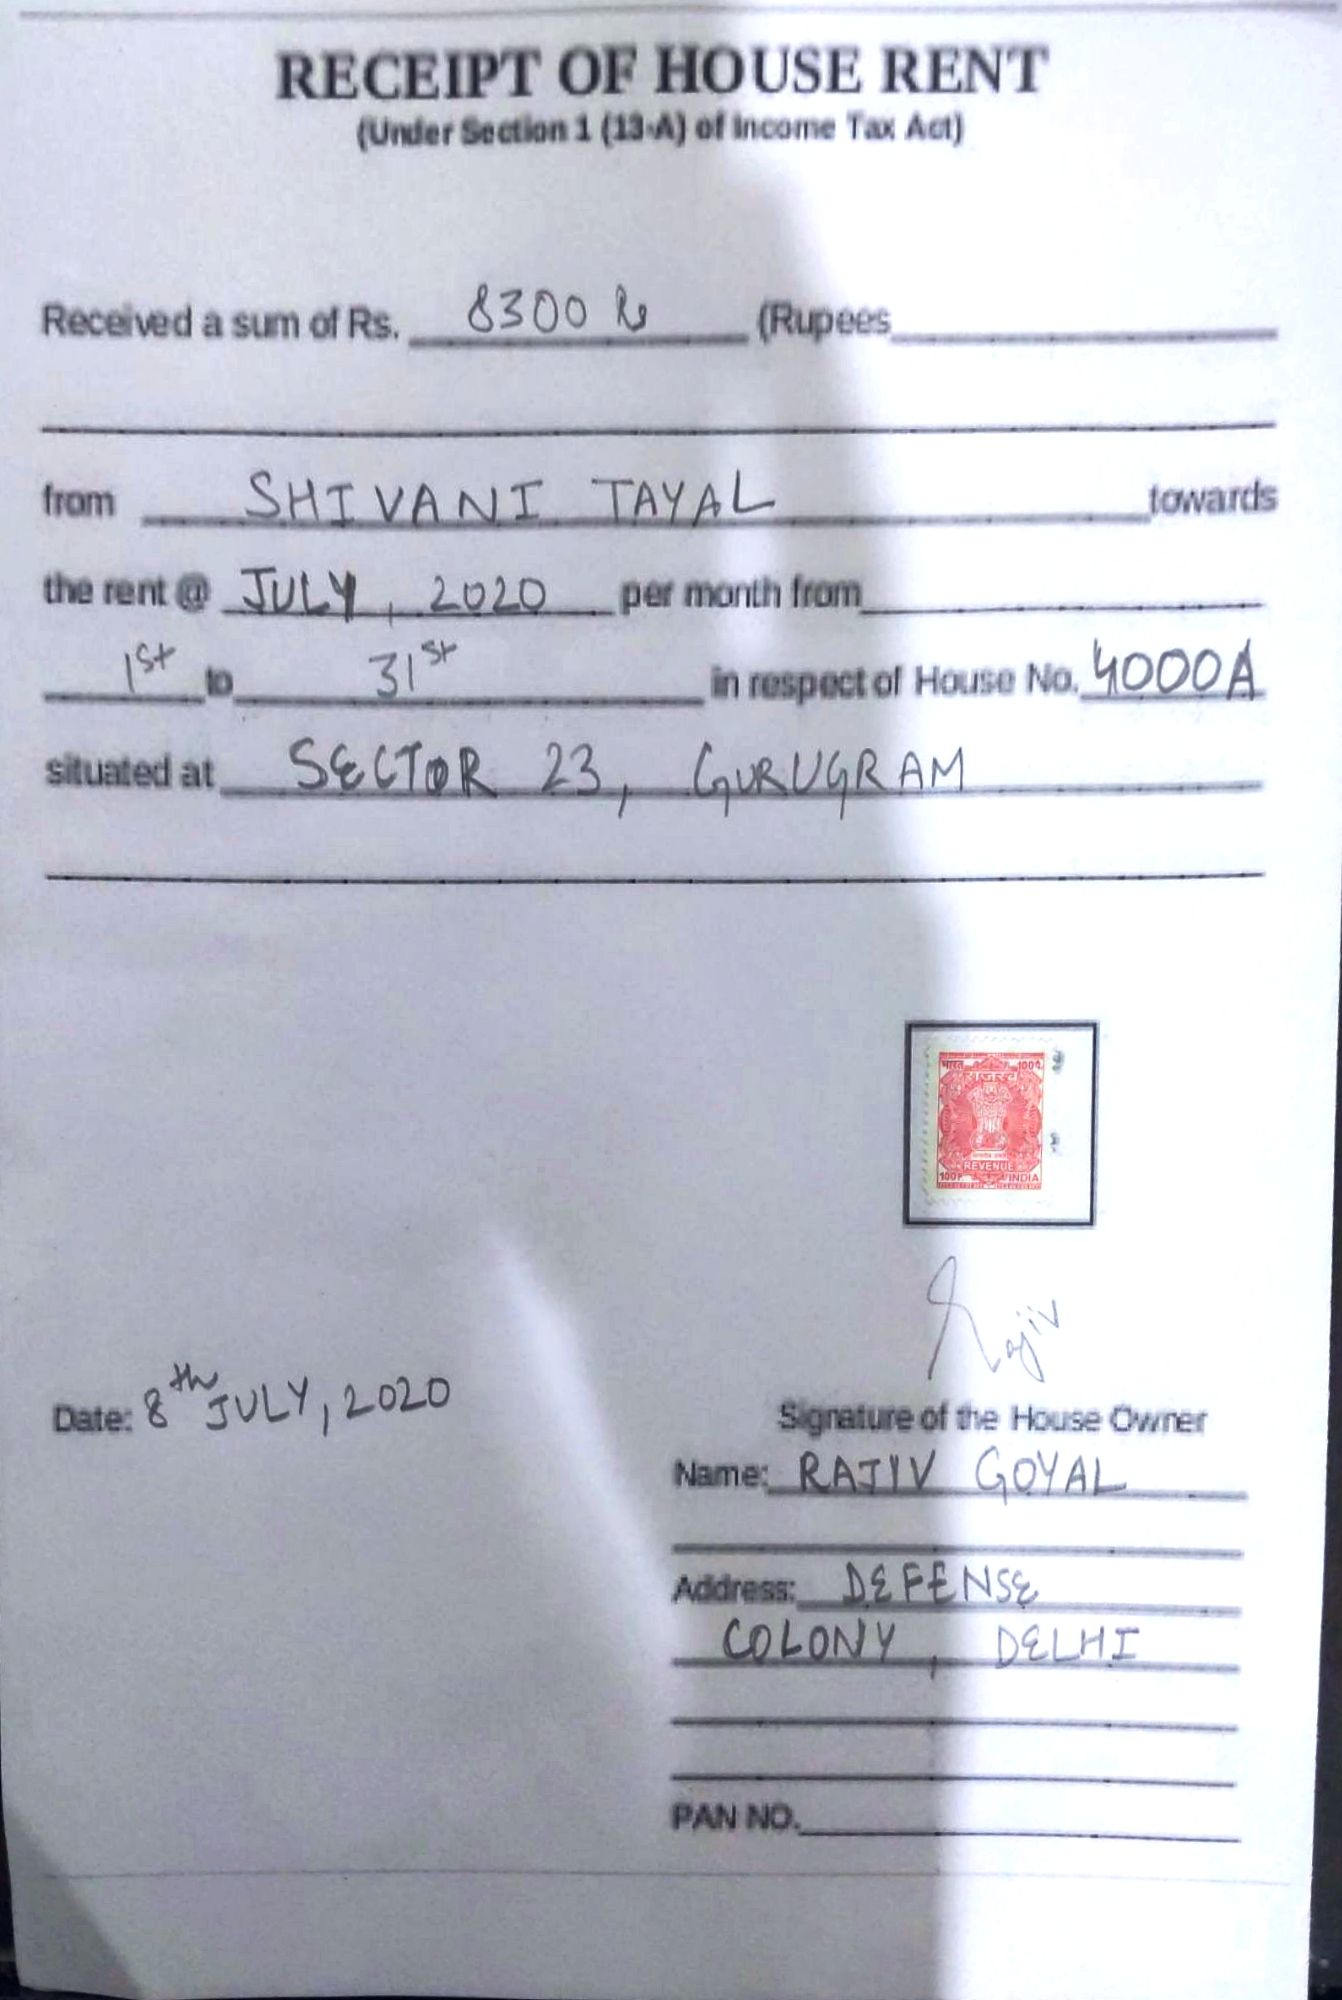 RECEIPT OF HOUSE RENT
(Under Section 1 (13-A) of Income Tax Act)
Received a sum of Rs. 8300 Rs (Rupees
from SHIVANI TAYAL towards
the rent @ JULY, 2020 per month from
1st to 31st in respect of House No. 4000A
situated at SECTOR 23, GURUGRAM
भारत 100P.
राजस्व
REVENUE
100P INDIA
Rajiv
Date: 8th JULY, 2020
Signature of the House Owner
Name: RAJIV GOYAL
Address: DEFENSE
COLONY, DELHI
PAN NO.